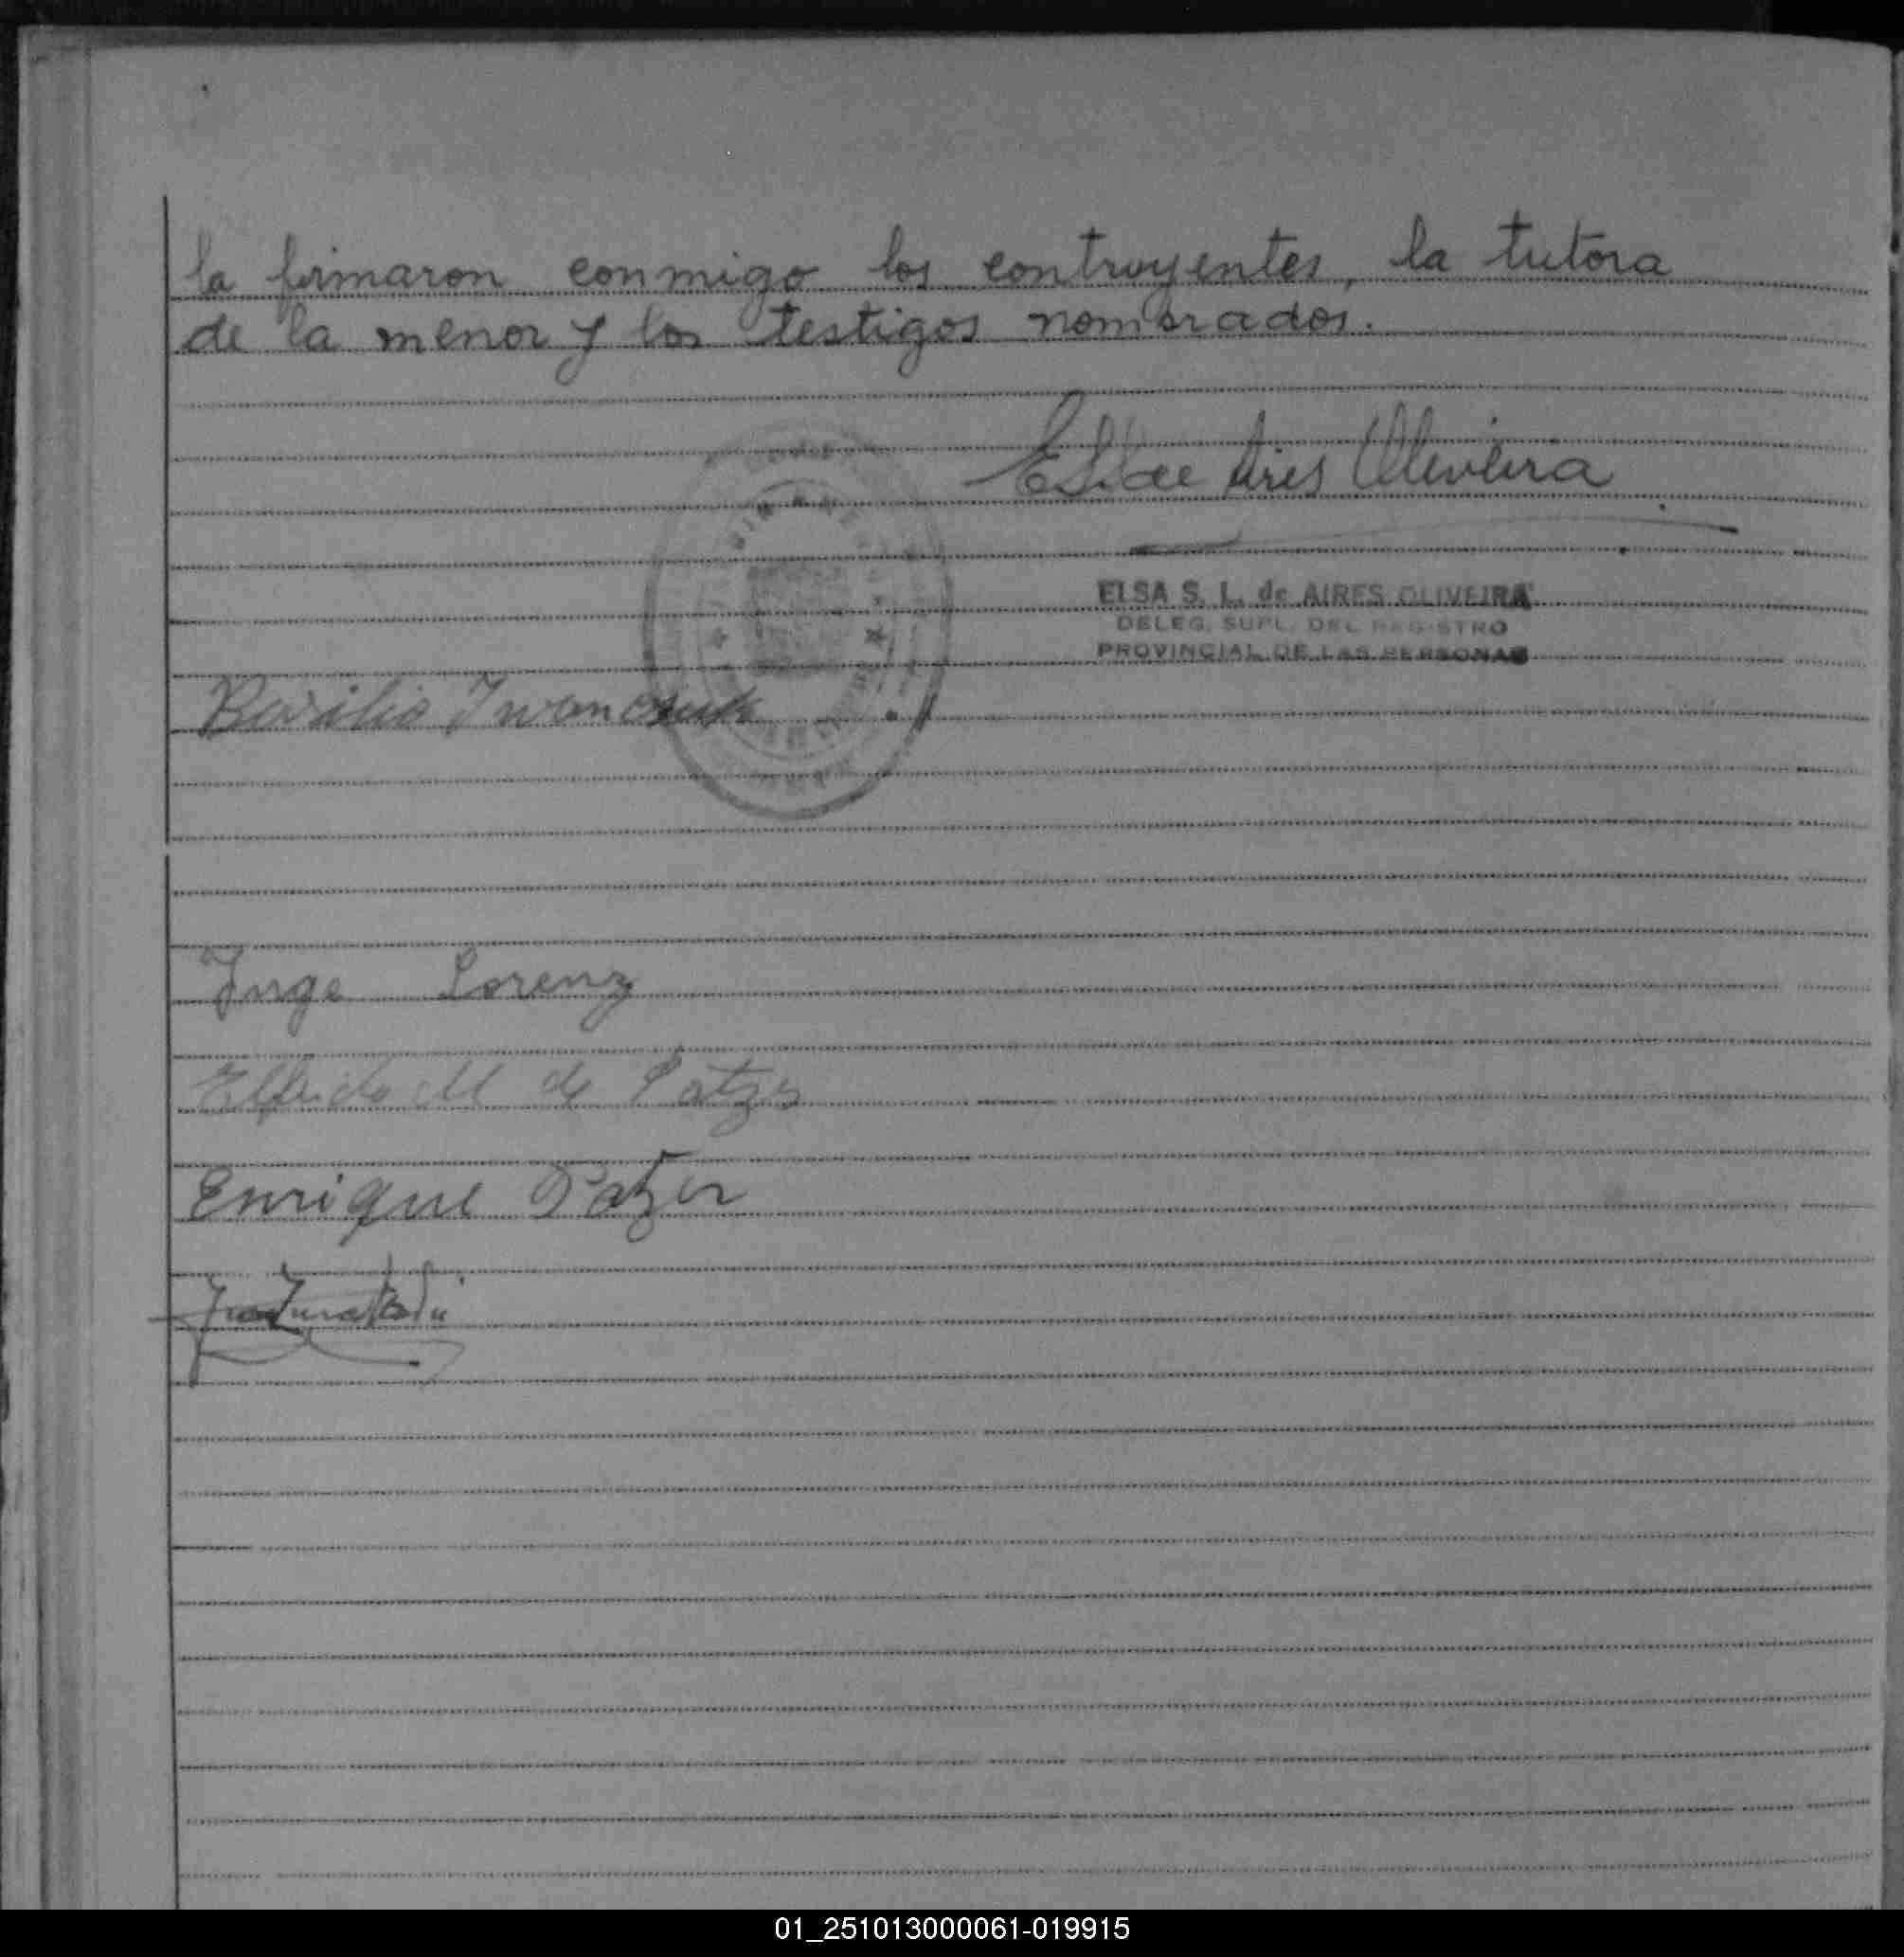 la firmaron conmigo los contrayentes, la tutora
de la menor y los testigos nombrados.
Elsa de Aires Oliveira
ELSA S. L. de AIRES OLIVEIRA
DELEG. SUPL. DEL REGISTRO
PROVINCIAL DE LAS PERSONAS
Basilio Iwanczuk
Inge Lorenz
M de
Enrique Patzer
01_251013000061-019915